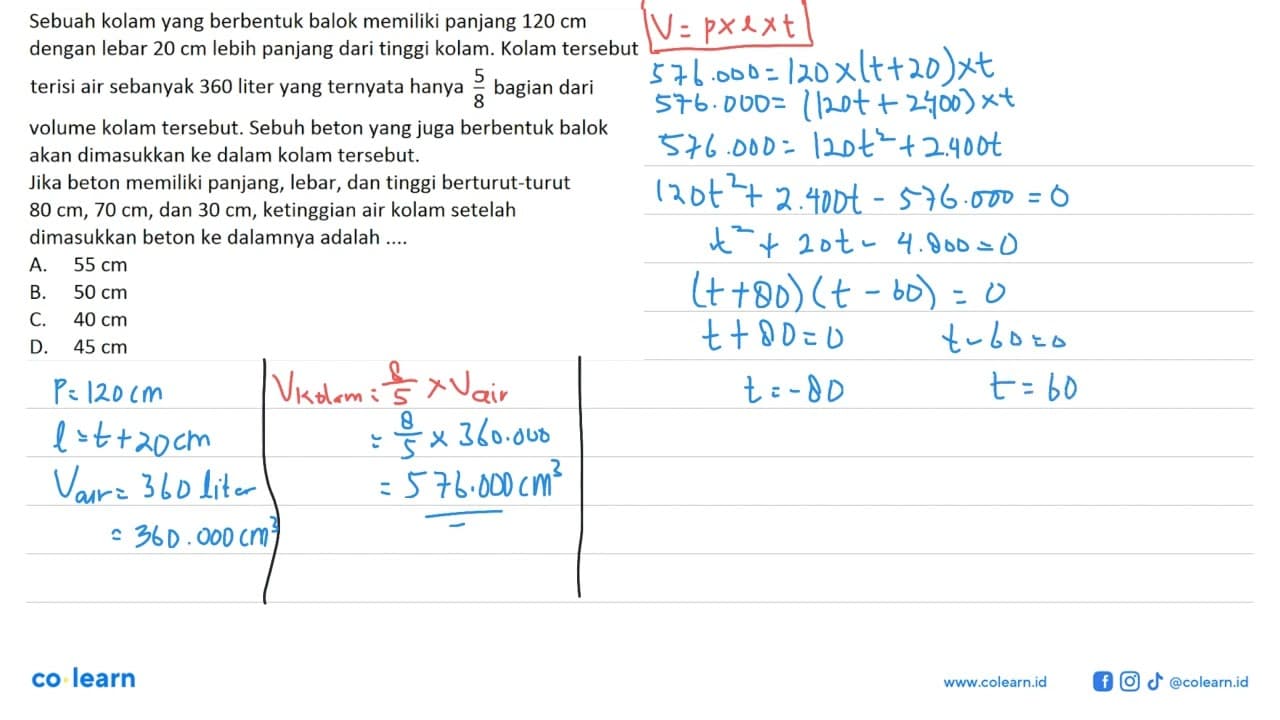 Sebuah kolam yang berbentuk balok memiliki panjang 120 cm
dengan lebar 20 cm lebih panjang dari tinggi kolam. Kolam tersebut
terisi air sebanyak 360 liter yang ternyata hanya 5/8 bagian dari
volume kolam tersebut. Sebuh beton yang juga berbentuk balok
akan dimasukkan ke dalam kolam tersebut.
Jika beton memiliki panjang, lebar, dan tinggi berturut-turut
80 cm, 70 cm, dan 30 cm, ketinggian air kolam setelah
dimasukkan beton ke dalamnya adalah ....
A. 55 cm
B. 50 cm
C. 40 cm
D. 45 cm
P = 120 cm
l = t + 20 cm
Vair = 360 liter
= 360.000 cm³
Vkolam = 8/5 × Vair
= 8/5 × 360.000
= 576.000 cm³
V = p × l × t
576.000 = 120 × (t + 20) × t
576.000 = (120t + 2.400) × t
576.000 = 120t² + 2.400t
120t² + 2.400t - 576.000 = 0
t² + 20t - 4.800 = 0
(t + 80)(t - 60) = 0
t + 80 = 0 t - 60 = 0
t = -80 t = 60
co learn
www.colearn.id
@colearn.id